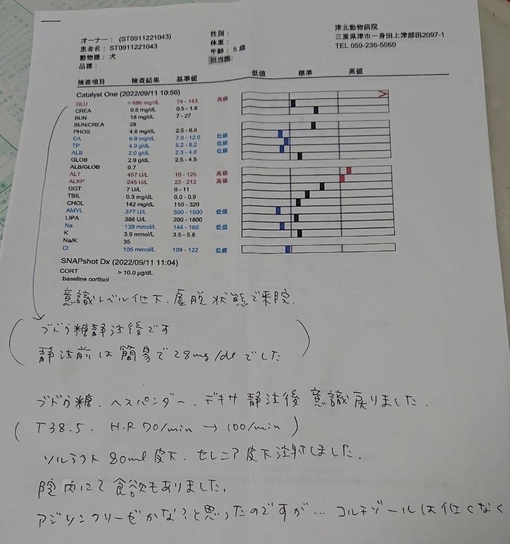 津北動物病院
オーナー： (ST0911221043) 性別： 三重県津市一身田上津部田2097-1
患者名： ST0911221043 体重： TEL 059-236-5060
動物種： 犬 年齢： 5 歳
品種： 担当医：
検査項目 検査結果 基準値 低値 標準 高値
Catalyst One (2022/09/11 10:56)
GLU > 686 mg/dL 74 - 143 高値
CREA 0.6 mg/dL 0.5 - 1.8
BUN 18 mg/dL 7 - 27
BUN/CREA 28
PHOS 4.6 mg/dL 2.5 - 6.8
CA 6.8 mg/dL 7.9 - 12.0 低値
TP 4.9 g/dL 5.2 - 8.2 低値
ALB 2.0 g/dL 2.3 - 4.0 低値
GLOB 2.9 g/dL 2.5 - 4.5
ALB/GLOB 0.7
ALT 457 U/L 10 - 125 高値
ALKP 245 U/L 23 - 212 高値
GGT 7 U/L 0 - 11
TBIL 0.3 mg/dL 0.0 - 0.9
CHOL 142 mg/dL 110 - 320
AMYL 377 U/L 500 - 1500 低値
LIPA 386 U/L 200 - 1800
Na 139 mmol/L 144 - 160 低値
K 3.9 mmol/L 3.5 - 5.8
Na/K 35
Cl 105 mmol/L 109 - 122 低値
SNAPshot Dx (2022/09/11 11:04)
CORT > 10.0 µg/dL
baseline cortisol
意識レベル低下、虚脱状態で来院.
ブドウ糖静注後です
静注前は簡易で28mg/dlでした
ブドウ糖、ヘスパンダー、デキサ静注後 意識戻りました.
( T38.5. H.R 70/min → 100/min )
ソルラクト 80ml 皮下、セレニア皮下注射しました.
院内にて食欲もありました.
アジソンクリーゼかな？と思ったのですが… コルチゾールは低くなく